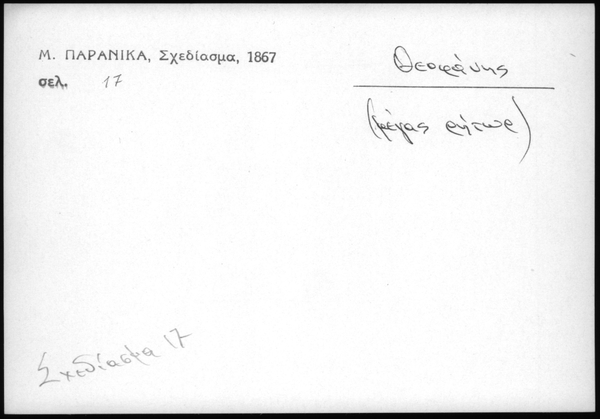 Μ. ΠΑΡΑΝΙΚΑ, Σχεδίασμα, 1867
σελ. 17
Θεοφάνης
(μέγας ρήτωρ)
Σχεδίασμα 17